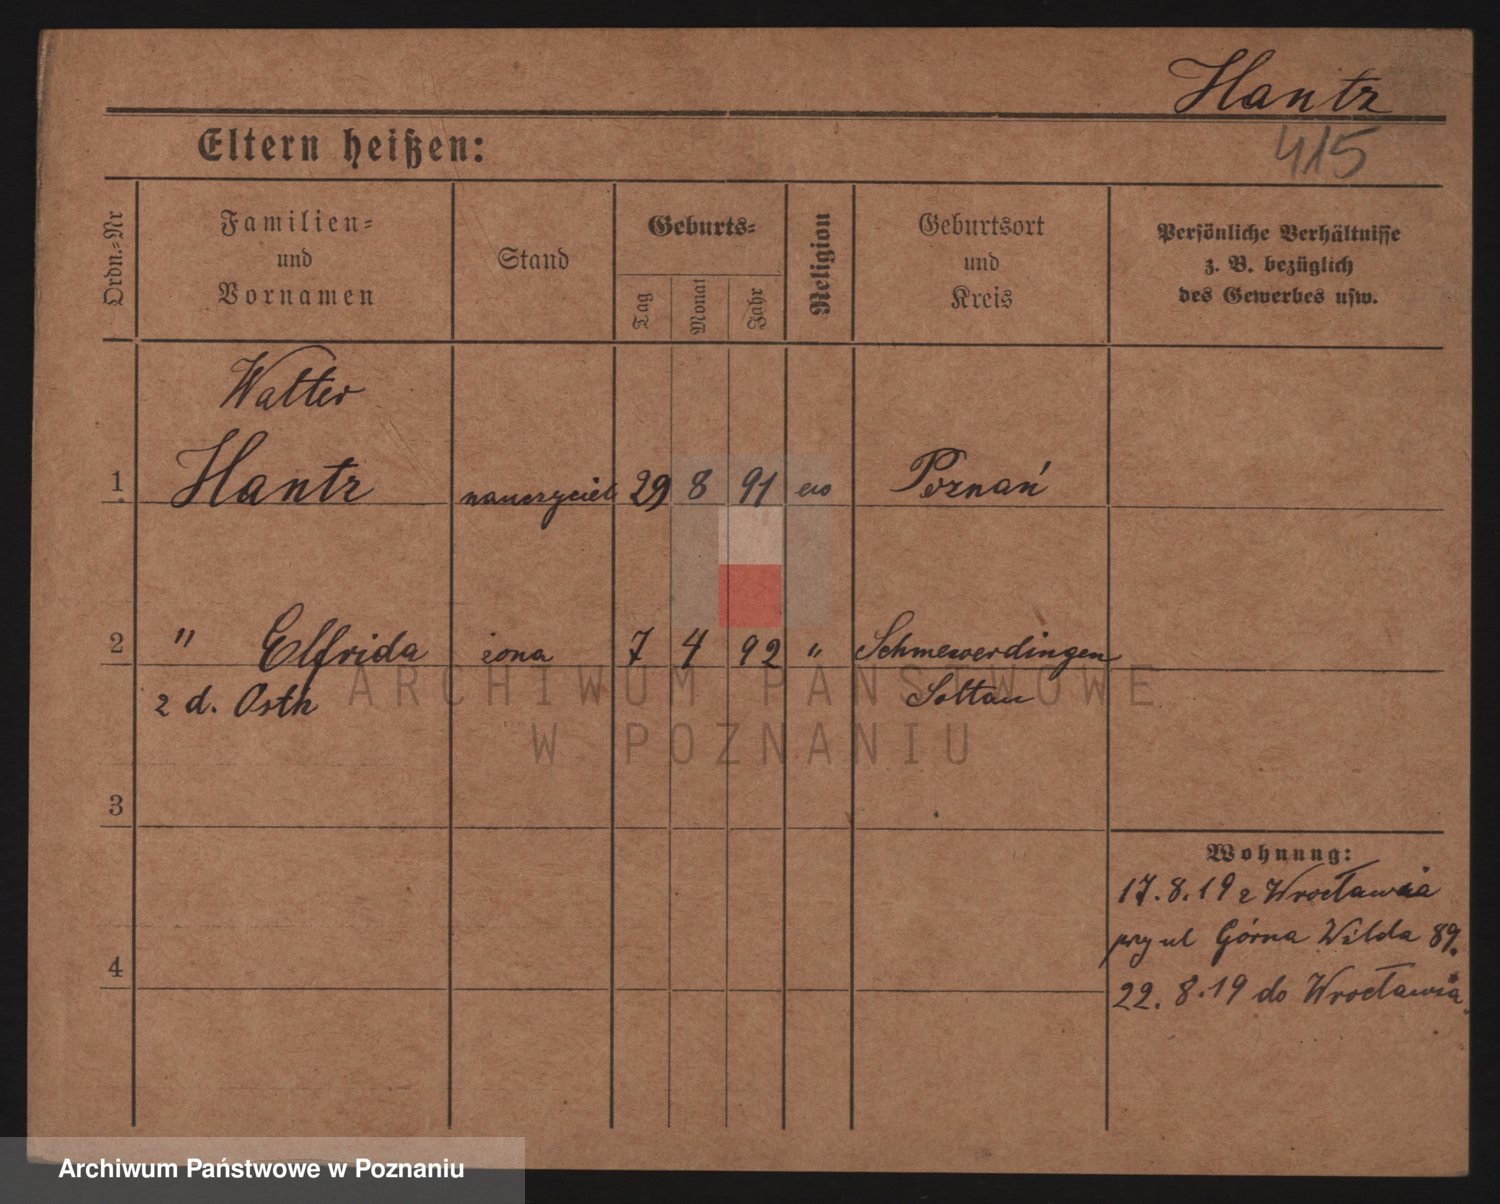 Hantz
415
Eltern heißen:
Ordn.=Nr
Familien=
und
Vornamen
Stand
Geburts=
Tag
Monat
Jahr
Religion
Geburtsort
und
Kreis
Persönliche Verhältnisse
z. B. bezüglich
des Gewerbes usw.
Walter
1 Hantz nauczyciel 29 8 91 ew Poznań
2 " Elfrida żona 7 4 92 " Schmewerdingen
z d. Osth Soltau
3
4
Wohnung:
17.8.19 z Wrocławia
przy ul Górna Wilda 89.
22.8.19 do Wrocławia
ARCHIWUM PAŃSTWOWE
W POZNANIU
Archiwum Państwowe w Poznaniu